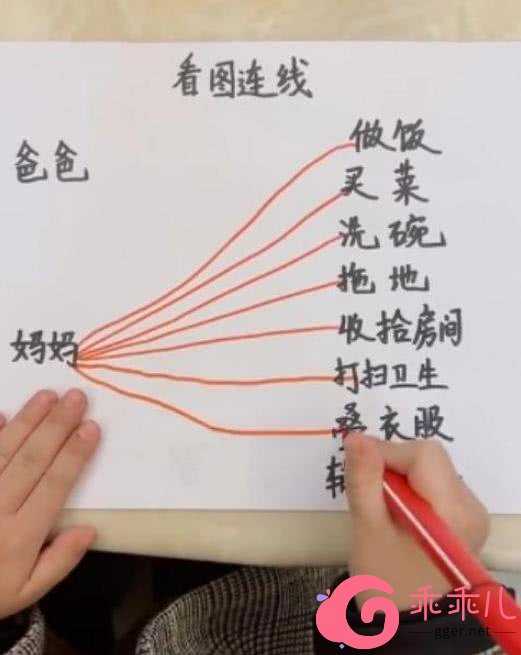 看图连线
爸爸
做饭
买菜
洗碗
拖地
妈妈
收拾房间
打扫卫生
叠衣服
乖乖儿
gger.net